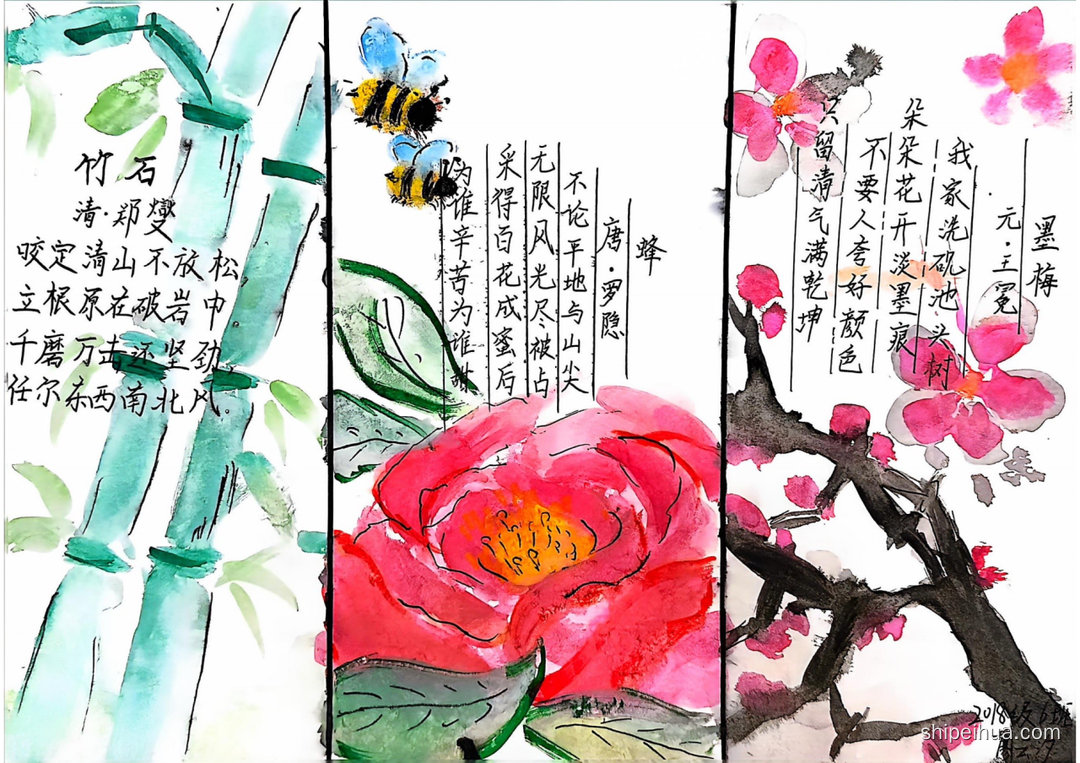 竹石
清·郑燮
咬定清山不放松
立根原在破岩中
千磨万击还坚劲,
任尔东西南北风。
蜂
唐·罗隐
不论平地与山尖
无限风光尽被占
采得百花成蜜后
为谁辛苦为谁甜
墨梅
元·王冕
我家洗砚池头树
朵朵花开淡墨痕
不要人夸好颜色
只留清气满乾坤
2018级6班
shipeihua.com